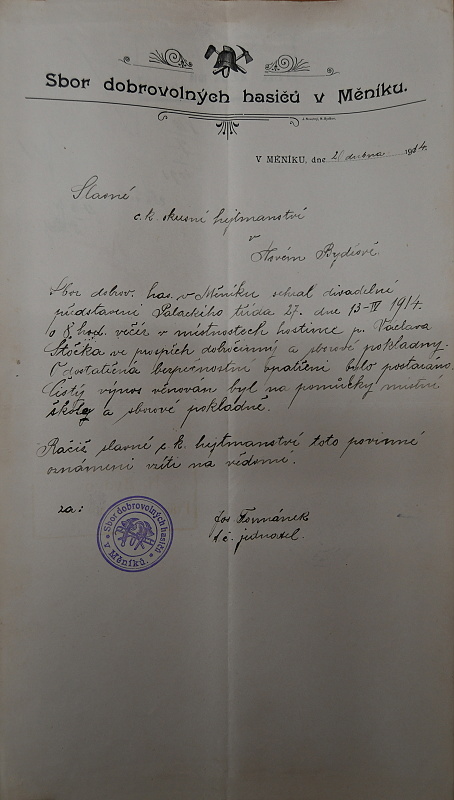 Sbor dobrovolných hasičů v Měníku.
V MĚNÍKU, dne 21 dubna 1914.
Slavné
c. k. okresní hejtmanství
v
Novém Bydžově.
Sbor dobrov. has. v Měníku sehrál divadelní
představení Palackého třída 27. dne 13-IV 1914.
o 8 hod. večer v místnostech hostince p. Václava
ve prospěch dobročinný a sborové pokladny.
O dostatečná bezpečnostní opatření bylo postaráno.
Čistý výnos věnován byl na pomůcky místní
školy a sborové pokladně.
Račiž slavné c. k. hejtmanství toto povinné
oznámení vzíti na vědomí.
za:
Sbor dobrovolných hasičů
v Měníku.
Jos Formánek
t. č. jednatel.